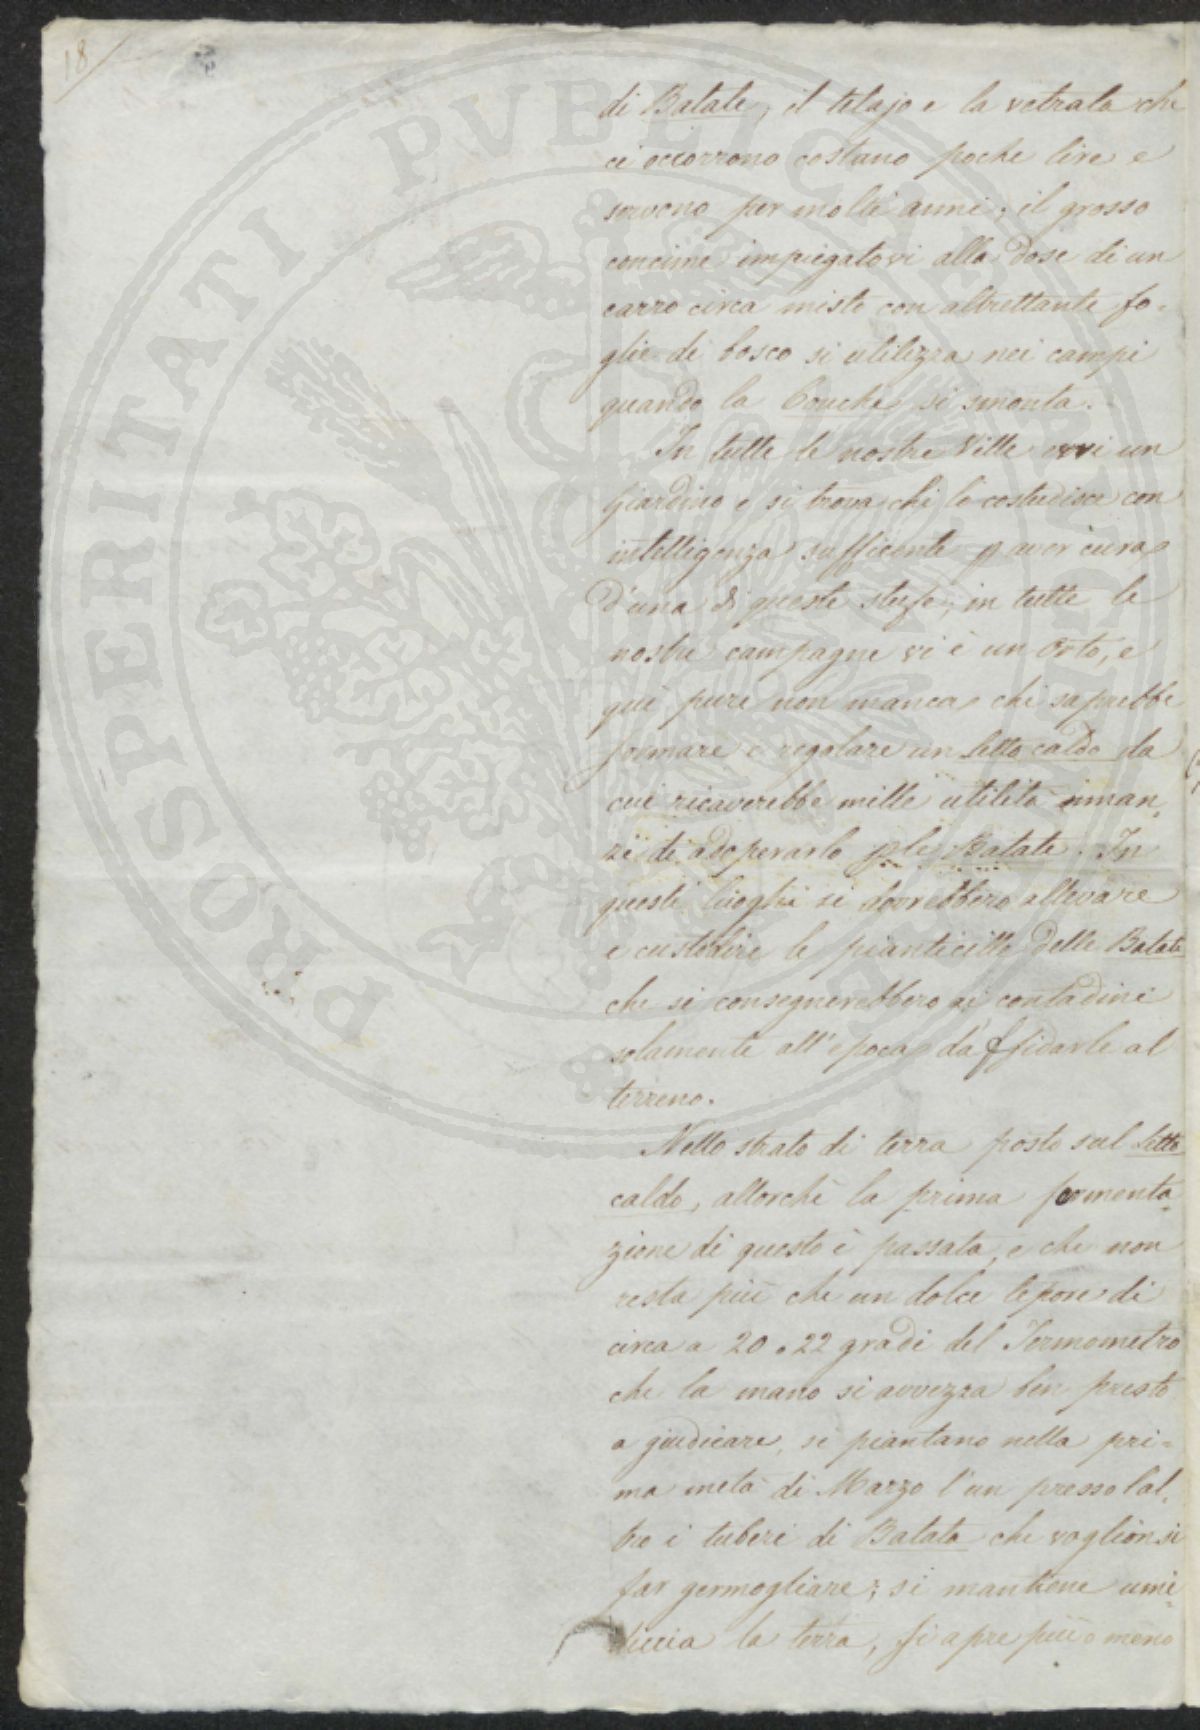 18
PROSPERITATI PUBLICAE AUGENDAE
di Batate, il telajo e la vetrata che
ci occorrono costano poche lire e
servono per molti anni; il grosso
concime impiegatovi alla dose di un
carro circa misto con altrettante fo-
glie di bosco si utilizza nei campi
quando la Couche si smonta.
In tutte le nostre Ville evvi un
Giardino e si trova chi lo costudisce con
intelligenza sufficente p aver cura
d'una di queste stufe; in tutte le
nostre campagne vi è un Orto, e
quì pure non manca chi saprebbe
formare e regolare un Letto caldo da
cui ricaverebbe mille utilità innan-
zi di adoperarlo p le Batate. In
questi luoghi si dovrebbero allevare
e custodire le pianticelle delle Batate
che si consegnerebbero ai contadini
solamente all'epoca d'affidarle al
terreno.
Nello strato di terra posto sul Letto
caldo, allorchè la prima fermenta-
zione di questo è passata, e che non
resta più che un dolce tepore di
circa a 20 o 22 gradi del Termometro
che la mano si avvezza ben presto
a giudicare, si piantano nella pri-
ma metà di Marzo l'un presso l'al-
tro i tuberi di Batata che voglionsi
far germogliare; si mantiene umi-
diccia la terra, si apre più o meno